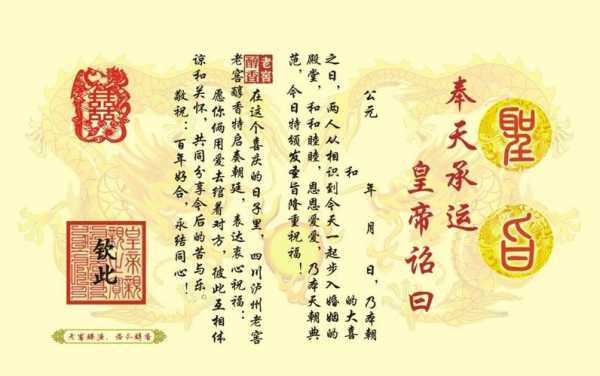 聖旨
奉天承运
皇帝诏曰
公元 年 月 日,乃本朝
和 的大喜
之日,两人从相识到今天一起步入婚姻的
殿堂,和和睦睦,恩恩爱爱,乃本天朝典
范,今日特颁发圣旨隆重祝福!
老窖醇香
在这个喜庆的日子里,四川泸州老窖
老窖醇香特启奏朝廷,表达衷心祝福:
愿你俩用爱去绾着对方,彼此互相体
谅和关怀,共同分享今后的苦与乐。
敬祝:百年好合,永结同心!
囍
钦此